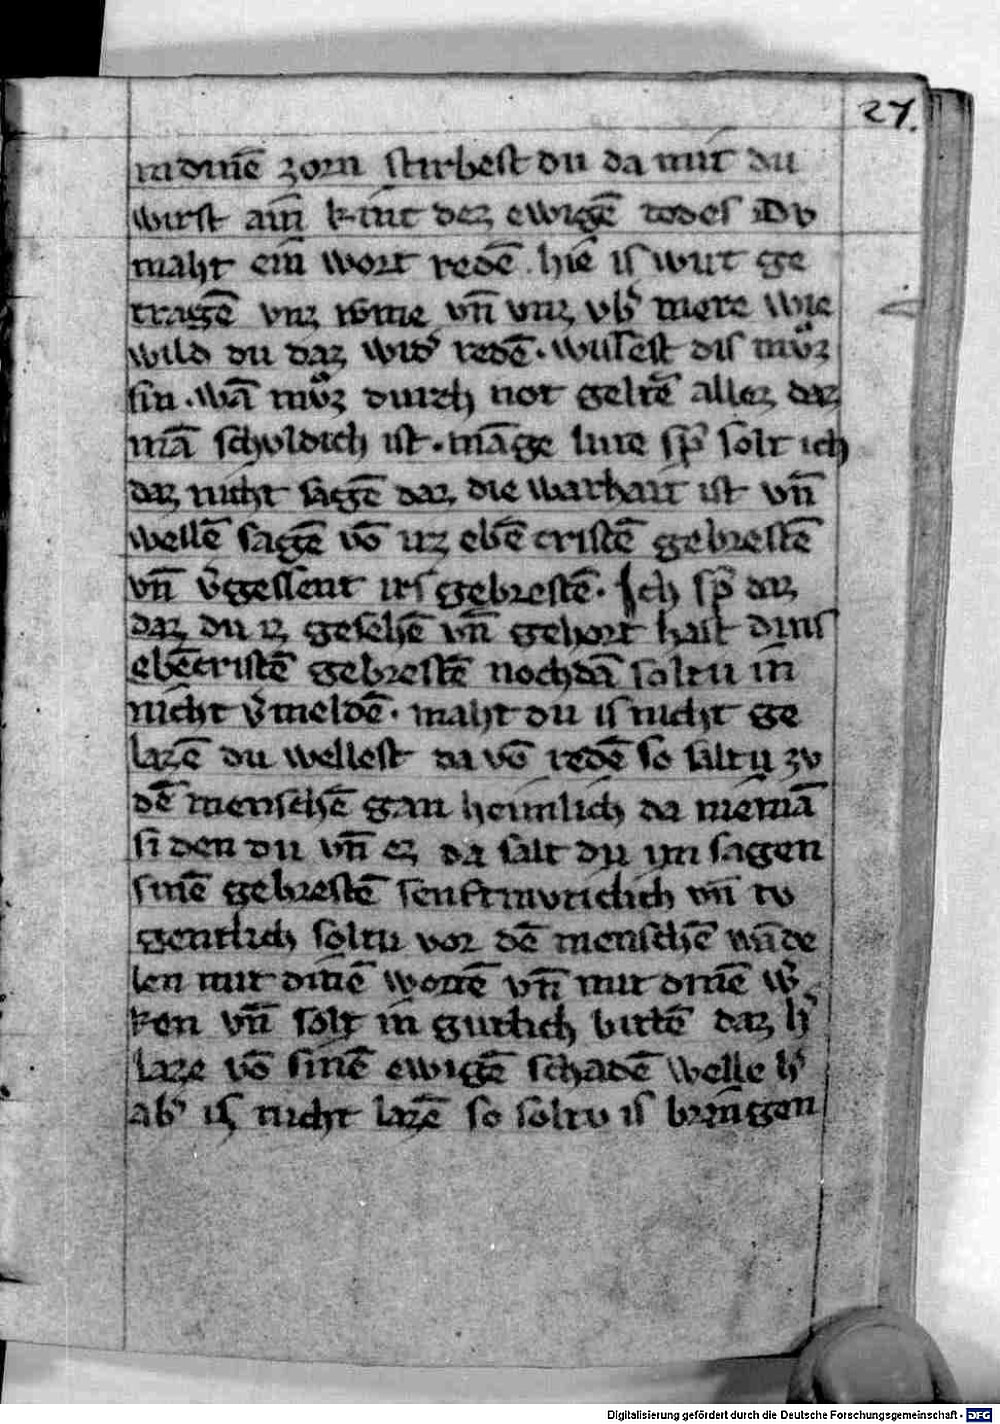 27.
in dinē zorn stirbest du da mit du
wirst ain kint dez ewigē todes Du
maht ein wort redē . hie is wirt ge
tragē vnz vn̄ vnz mere wie
wild du daz wid᷎ redē . wissest dis mvͦz
sin . wā mvͦz durch not geltē allez daz
mā schuldich ist . māge lute sp᷎ solt ich
daz nicht sagē daz die warhait ist vn̄
wellē sagē vō irz ebē cristē gebrestē
vn̄ v᷎gessent irs gebrestē . Ich sp᷎ daz
daz du iz gesehē vn̄ gehort hast dins
ebēcristē gebrestē nochdā soltu in
nicht v᷎meldē . maht du is nicht ge
lazē du wellest da vō redē so saltu zv
dē menschē gan heimlich da niemā
si den du vn̄ ez da salt du im sagen
sinē gebrestē senftmvticlich vn̄ tv
gentlich soltu vor dē menschē wāde
len mit dinē wortē vn̄ mit dinē w᷎
ken vn̄ solt in gutlich bittē daz h᷎
laze vō sinē ewigē schadē welle h᷎
ab᷎ is nicht lazē so soltv is bringen
Digitalisierung gefördert durch die Deutsche Forschungsgemeinschaft - DFG